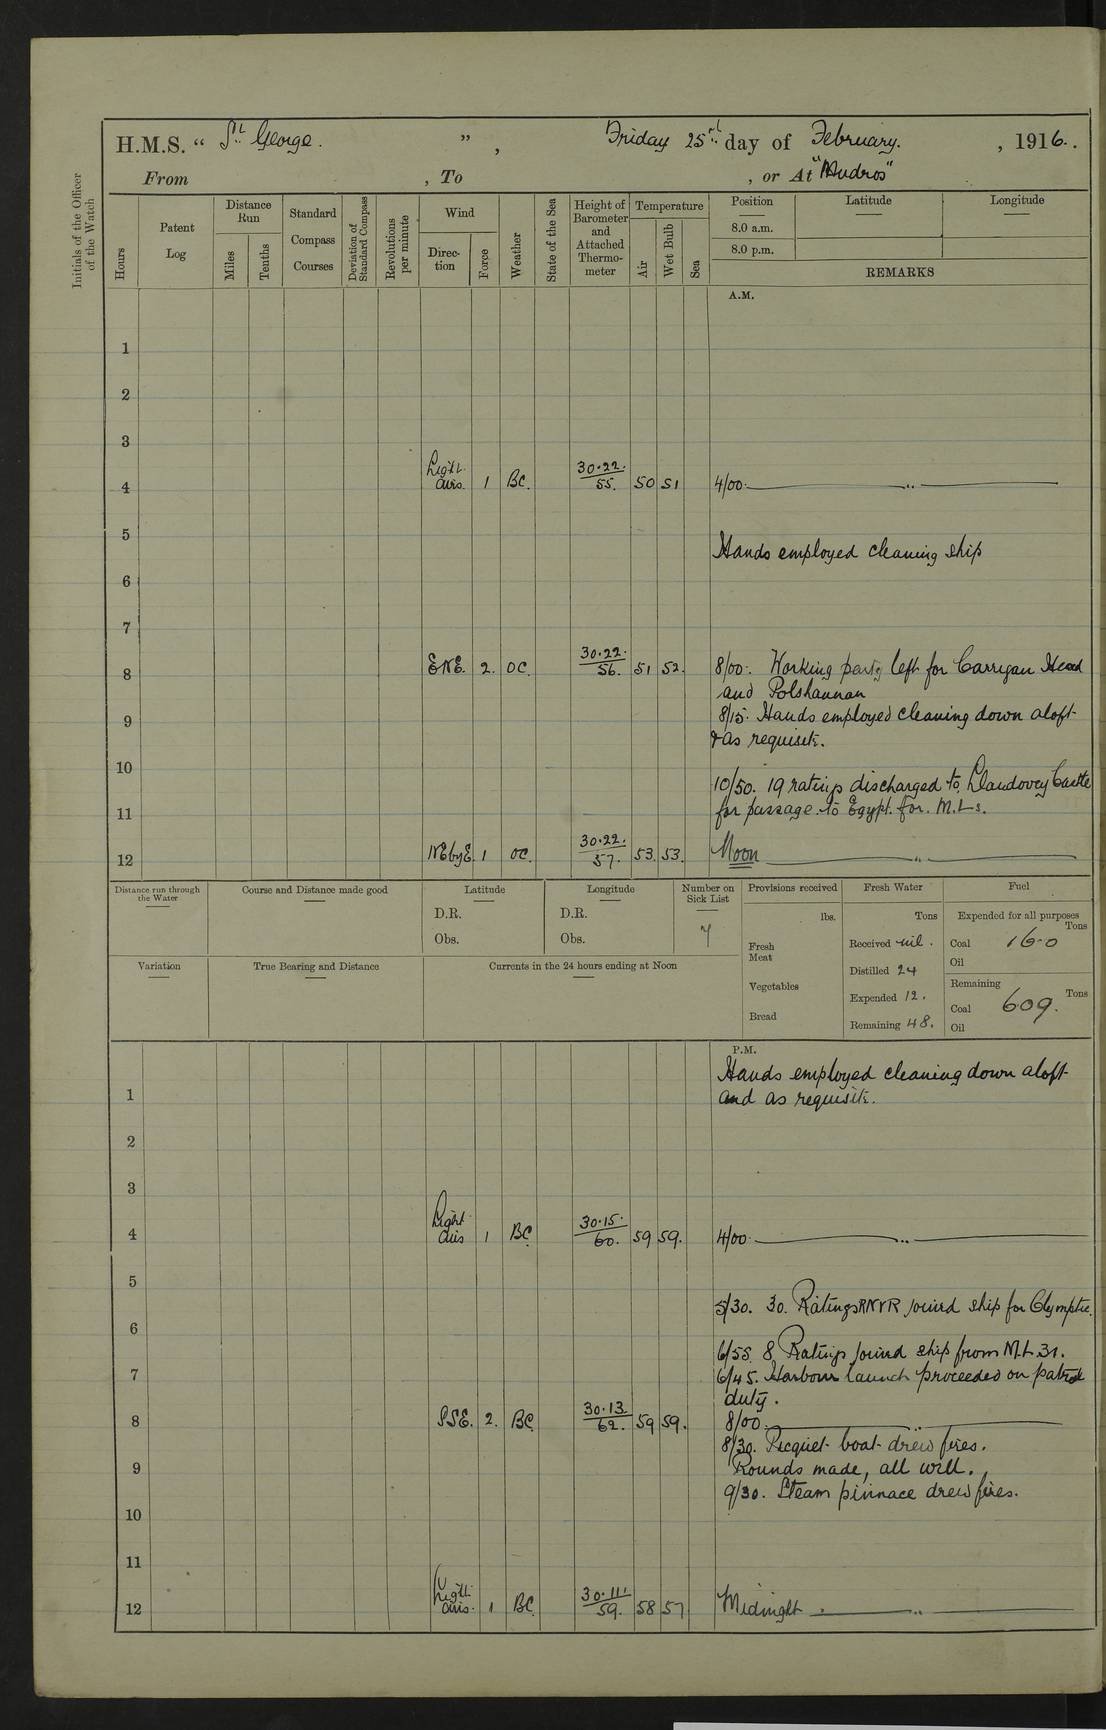 H.M.S. “ St. George. ” , Friday 25th day of February. , 1916.
From , To , or At "Mudros"
Initials of the Officer of the Watch
Hours
Patent Log
Distance Run
Miles
Tenths
Standard Compass Courses
Deviation of Standard Compass
Revolutions per minute
Wind
Direction
Force
Weather
State of the Sea
Height of Barometer and Attached Thermometer
Temperature
Air
Wet Bulb
Sea
Position
8.0 a.m.
8.0 p.m.
Latitude
Longitude
REMARKS
A.M.
1
2
3
4 Light airs. 1 BC. 30.22. 55. 50 51 4/00. "
5
Hands employed cleaning ship
6
7
8 ENE. 2. OC. 30.22. 56. 51 52. 8/00. Working party left for Carrigan Head
and Polshannan
9 8/15. Hands employed cleaning down aloft
& as requisite.
10
10/50. 19 ratings discharged to Llandovery Castle
11 for passage to Egypt for M.Ls.
12 NEbyE. 1 OC. 30.22. 57. 53. 53. Noon "
Distance run through the Water
Course and Distance made good
Latitude
D.R.
Obs.
Longitude
D.R.
Obs.
Number on Sick List
7
Provisions received
lbs.
Fresh Meat
Vegetables
Bread
Fresh Water
Tons
Received nil.
Distilled 24
Expended 12.
Remaining 48.
Fuel
Expended for all purposes
Tons
Coal 16.0
Oil
Remaining
Tons
Coal 609.
Oil
Variation
True Bearing and Distance
Currents in the 24 hours ending at Noon
P.M.
Hands employed cleaning down aloft
1 and as requisite.
2
3
4 Light airs 1 BC. 30.15. 60. 59 59. 4/00. "
5
5/30. 30. Ratings RNVR joined ship for Olympic.
6
6/55. 8 Ratings joined ship from M.L 31.
7 6/45. Harbour launch proceeded on patrol
duty.
8 SSE. 2. BC. 30.13. 62. 59 59. 8/00. "
8/30. Picquet boat drew fires.
9 Rounds made, all well.
9/30. Steam pinnace drew fires.
10
11
12 Light airs. 1 BC. 30.11. 59. 58 57 Midnight "